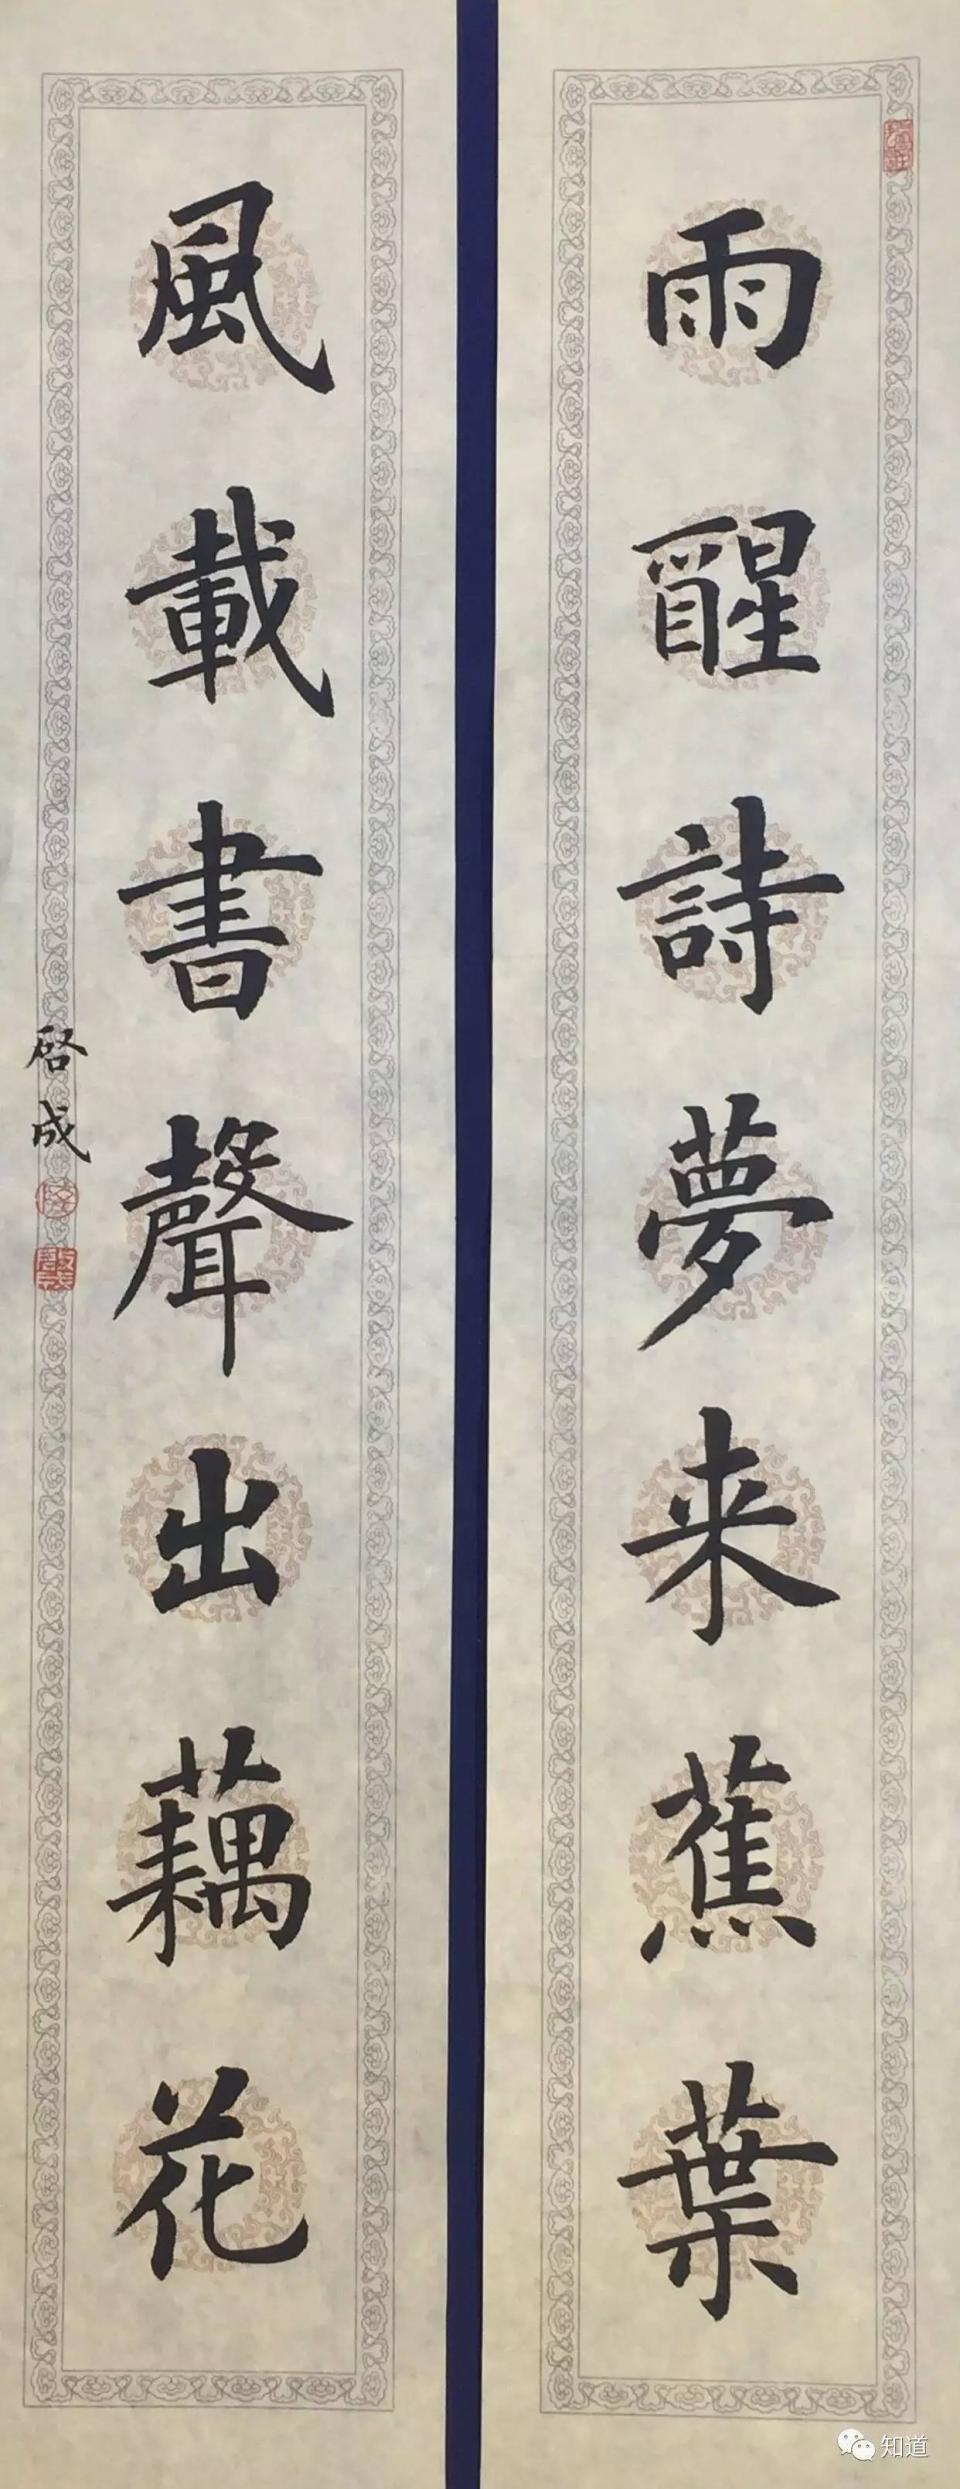 雨醒詩夢来蕉葉
風載書聲出藕花
啓成
知道